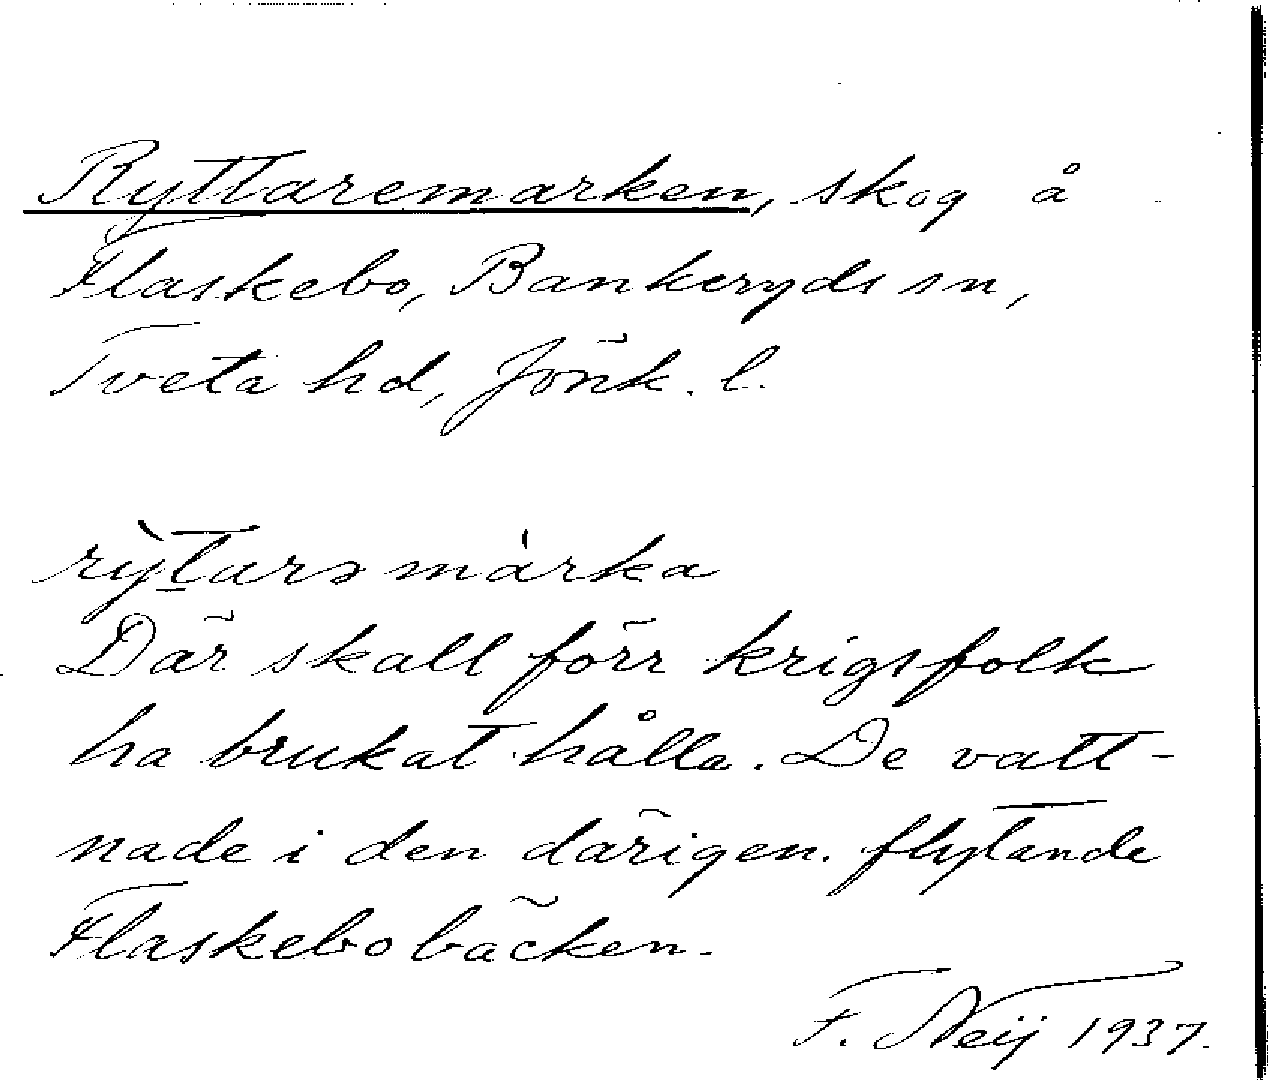 Ryttaremarken, skog å
Flaskebo, Bankeryds sn,
Tveta hd, Jönk. l.
rỳt̲arsmàrka
Där skall förr krigsfolk
ha brukat hålla. De vatt-
nade i den därigen. flytande
Flaskebobäcken.
F. Neij 1937.